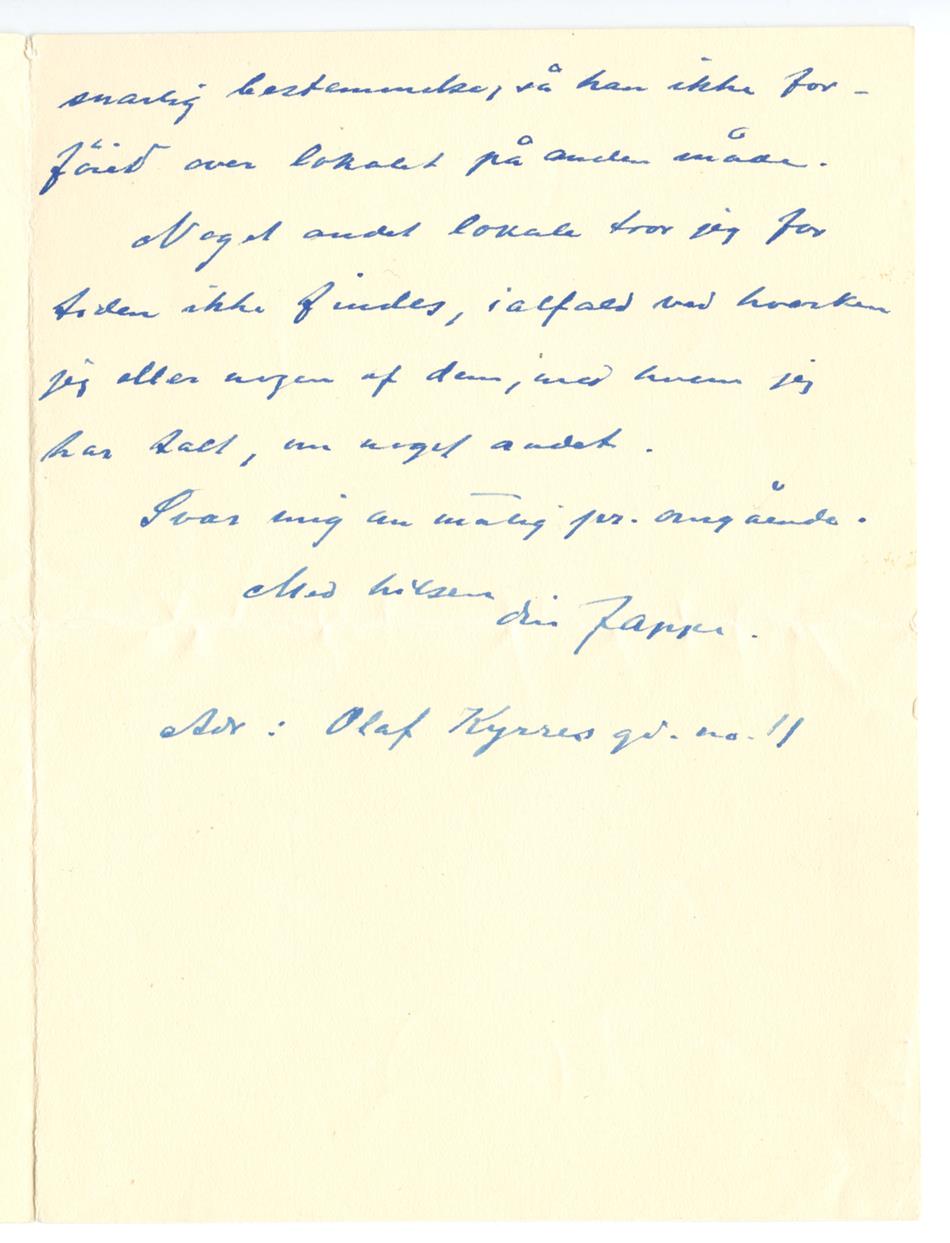 snarlig bestemmelse, så han ikke for-
föier over lokalet på anden måde.
Noget andet lokale tror jeg for
tiden ikke findes, ialfald ved hverken
jeg eller nogen af dem, med hvem jeg
har talt, om noget andet.
Svar mig om mulig pr. omgående.
Med hilsen
din Jappe.
Adr: Olaf Kyrres gd. no. 11